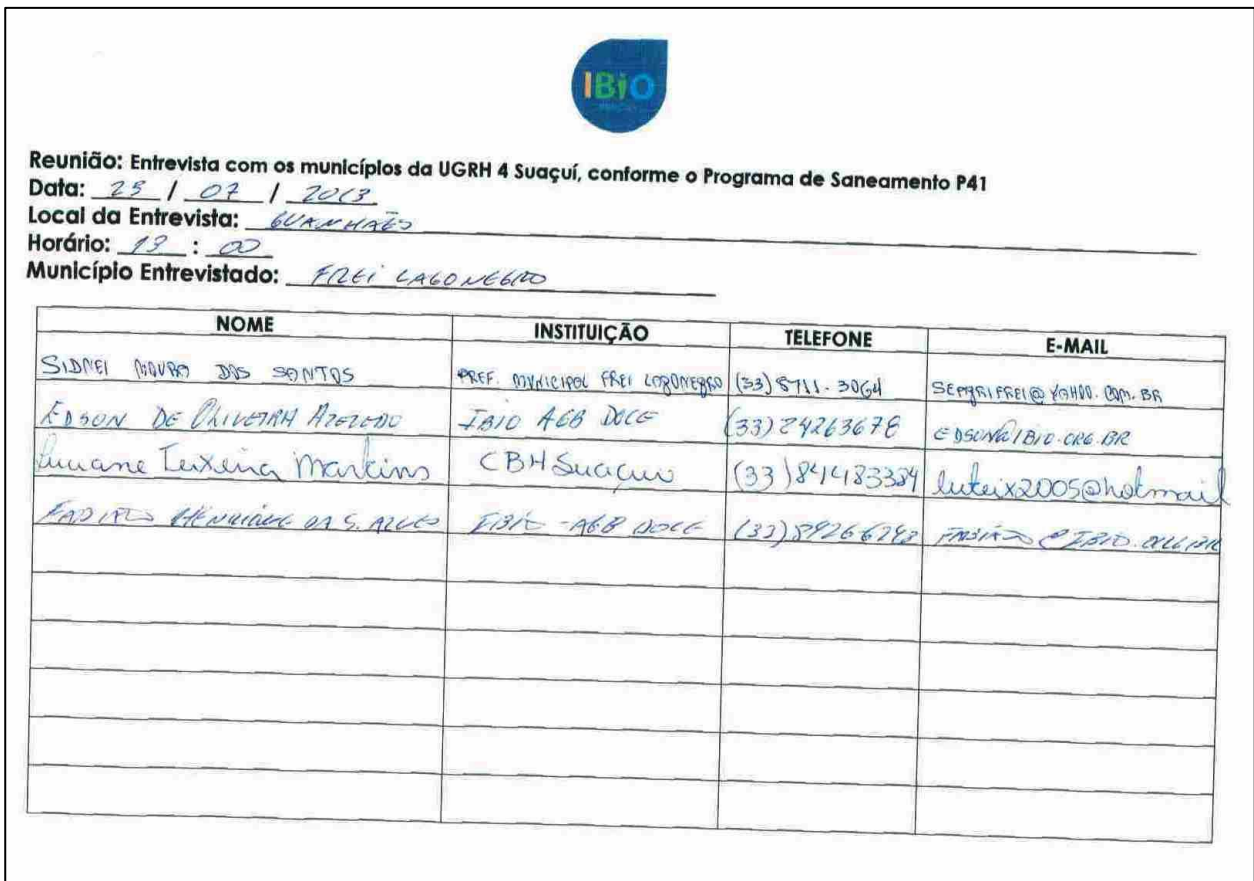 IBiO
Reunião: Entrevista com os municípios da UGRH 4 Suaçuí, conforme o Programa de Saneamento P41
Data: 25 / 07 / 2013
Local da Entrevista: GUANHÃES
Horário: 13 : 00
Município Entrevistado: FREI LAGONEGRO
NOME INSTITUIÇÃO TELEFONE E-MAIL
SIDNEI MOURA DOS SANTOS PREF. MUNICIPAL FREI LAGONEGRO (33) 8711-3064 SEPAGRIFREI@YAHOO.COM.BR
EDSON DE OLIVEIRA AZEVEDO IBIO AGB DOCE (33) 84263678 EDSON@IBIO.ORG.BR
Luciane Teixeira Martins CBH Suaçuí (33) 84483384 luteix2005@hotmail
HENRIQUE DA S. ALVES IBIO - AGB DOCE (33)